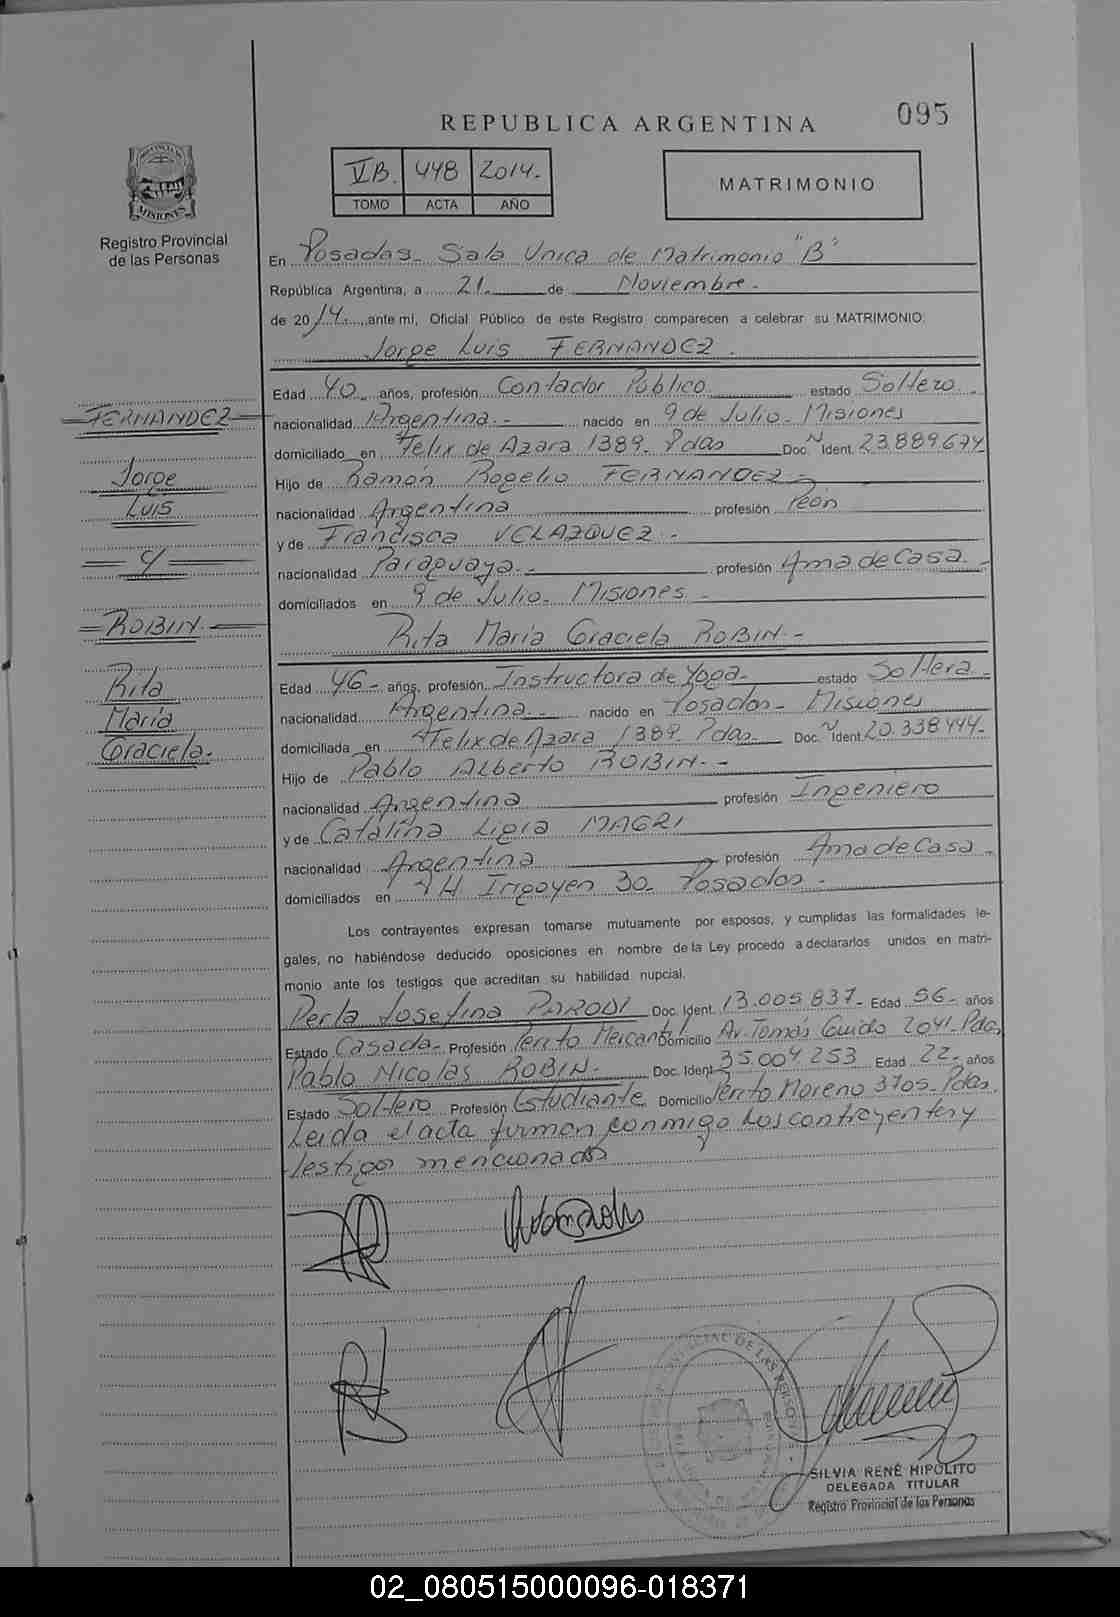 095
REPUBLICA ARGENTINA
VB. 448 2014.-
TOMO ACTA AÑO
MATRIMONIO
PROVINCIA DE
MISIONES
Registro Provincial
de las Personas
En Posadas - Sala Unica de Matrimonio "B"
República Argentina, a 21 de Noviembre.-
de 2014 ante mí, Oficial Público de este Registro comparecen a celebrar su MATRIMONIO:
Jorge Luis FERNANDEZ.
Edad 40 años, profesión Contador Público estado Soltero
nacionalidad Argentina.- nacido en 9 de Julio - Misiones
domiciliado en Felix de Azara 1389 Pdas Doc. N Ident. 23.889.674
Hijo de Ramón Rogelio FERNANDEZ
nacionalidad Argentina profesión Peon
y de Francisca VELAZQUEZ.-
nacionalidad Paraguaya.- profesión Ama de Casa.
domiciliados en 9 de Julio - Misiones
Rita María Graciela ROBIN.-
Edad 46 años, profesión Instructora de Yoga estado Soltera
nacionalidad Argentina.- nacido en Posadas - Misiones
domiciliada en Felix de Azara 1389 Pdas. Doc. N Ident. 20.338.444.-
Hijo de Pablo Alberto ROBIN.-
nacionalidad Argentina profesión Ingeniero
y de Catalina Ligia MAGRI
nacionalidad Argentina profesión Ama de Casa
domiciliados en H. Irigoyen 30 - Posadas.
Los contrayentes expresan tomarse mutuamente por esposos, y cumplidas las formalidades le-
gales, no habiéndose deducido oposiciones en nombre de la Ley procedo a declararlos unidos en matri-
monio ante los testigos que acreditan su habilidad nupcial.
Perla Josefina PARODI Doc. Ident. 13.005.837 - Edad 56 - años
Estado Casada - Profesión Perito Mercantil Domicilio Av. Tomás Guido 2041 - Pdas
Pablo Nicolas ROBIN.- Doc. Ident. 35.004.253 Edad 22 - años
Estado Soltero Profesión Estudiante Domicilio Perito Moreno 3705 - Pdas.
Leída el acta firman conmigo los contrayentes y
testigos mencionados
FERNANDEZ
Jorge
Luis
y
ROBIN
Rita
María
Graciela.
SILVIA RENÉ HIPOLITO
DELEGADA TITULAR
Registro Provincial de las Personas
02_080515000096-018371